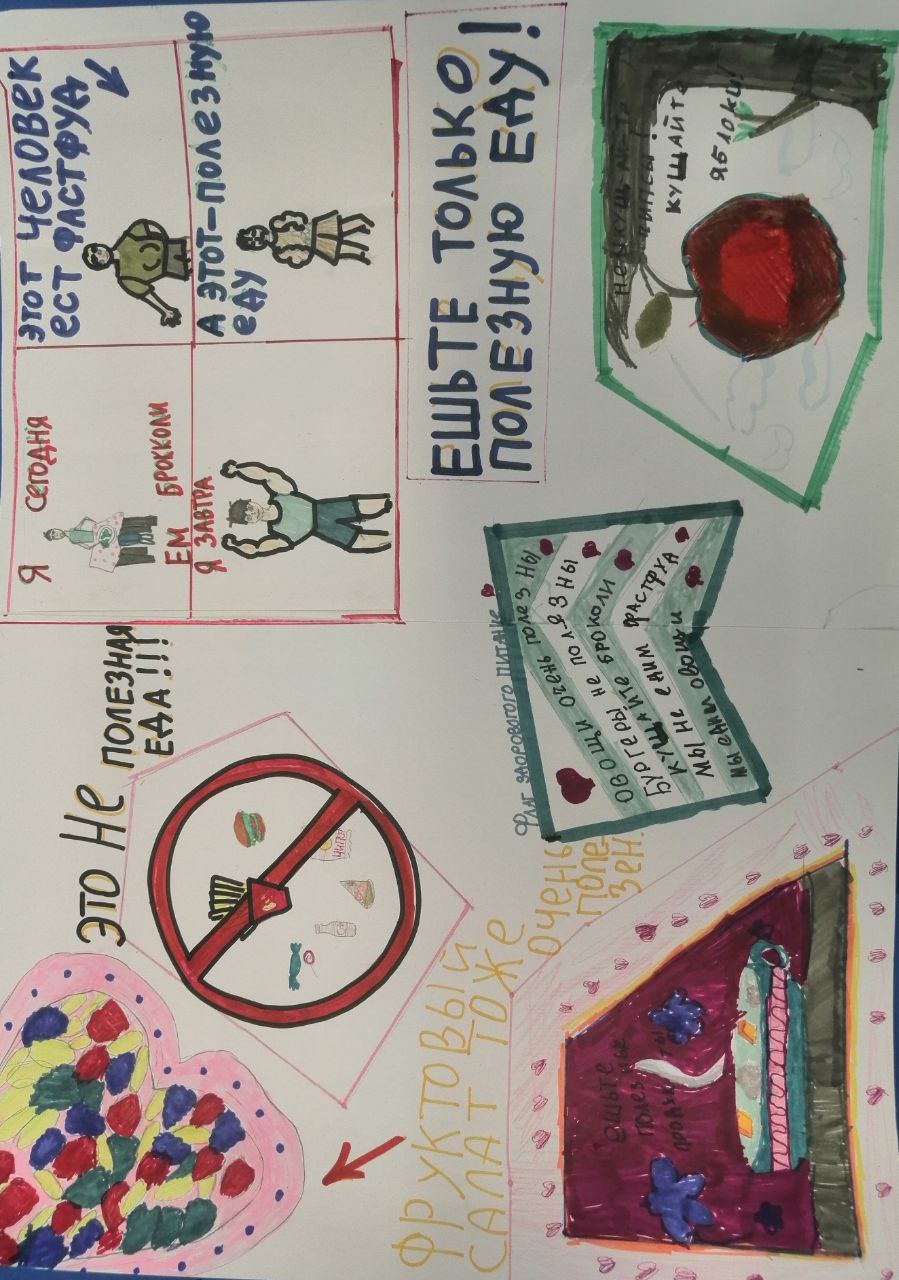 ЭТО НЕ
ПОЛЕЗНАЯ
ЕДА!!!
ЧИПСЫ
Я СЕГОДНЯ
ЕМ БРОККОЛИ
Я ЗАВТРА
ЭТОТ ЧЕЛОВЕК
ЕСТ ФАСТФУД
А ЭТОТ-ПОЛЕЗНУЮ
ЕДУ
ФРУКТОВЫЙ
САЛАТ ТОЖЕ
ОЧЕНЬ
ПОЛЕ-
ЗЕН.
ЕШЬТЕ ТОЛЬКО
ПОЛЕЗНУЮ ЕДУ!
ФЛАГ ЗДОРОВОГО ПИТАНИЕ
ОВОЩИ ОЧЕНЬ ПОЛЕЗНЫ
БУРГЕРЫ НЕ ПОЛЯЗНЫ
КУШАЙТЕ БРОКОЛИ
МЫ НЕ ЕДИМ ФАСТФУД
МЫ ЕДИМ ОВОЩИ
ЕШЬТЕ
ПОЛЕЗНЫЕ
ПРОДУКТЫ
КУШАЙТЕ
ЯБЛОКИ!